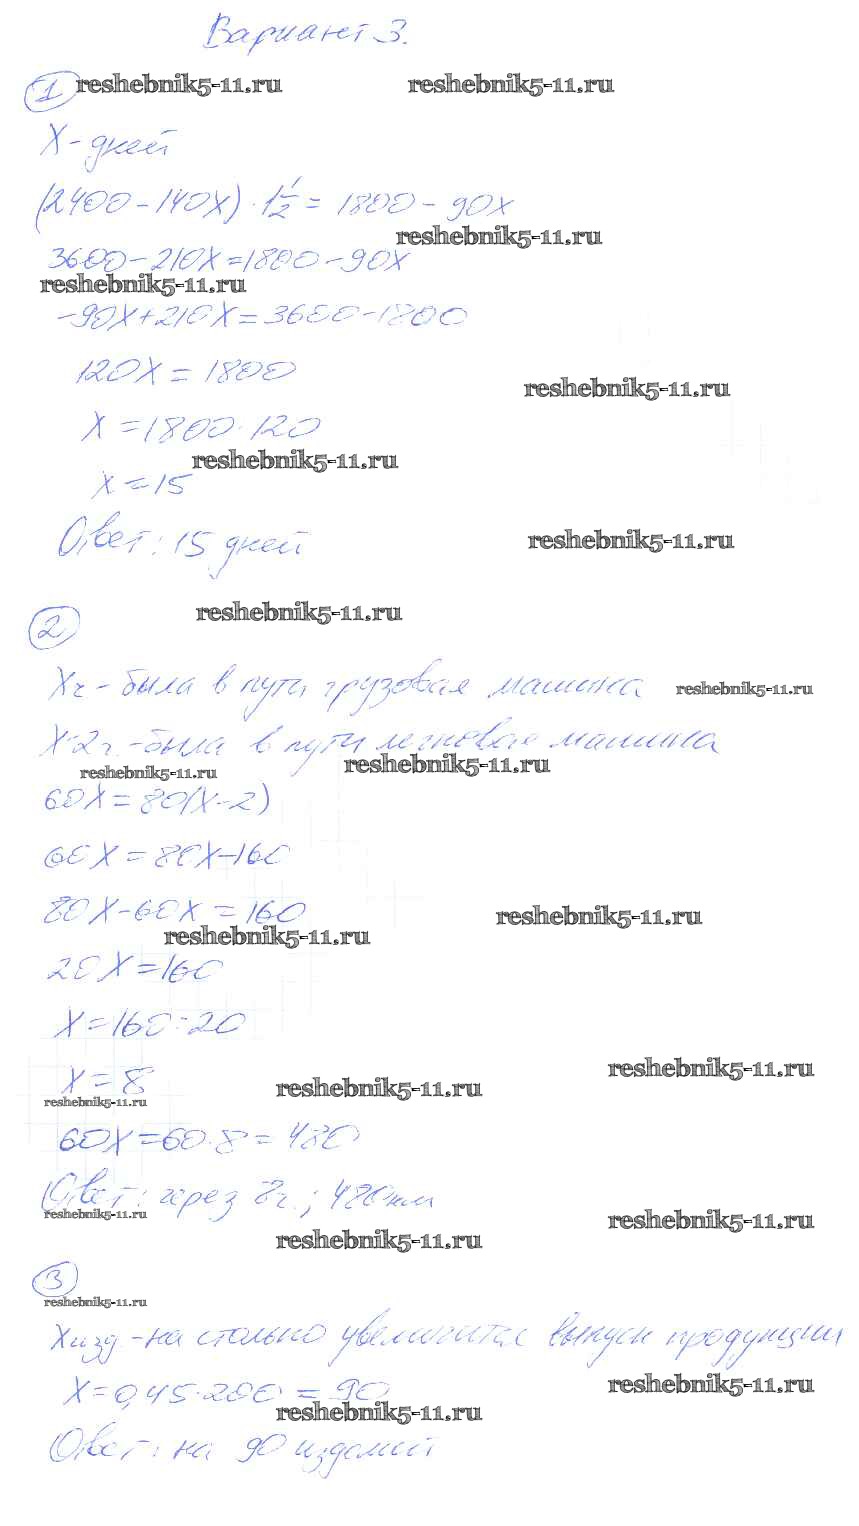 Вариант 3.
1 reshebnik5-11.ru reshebnik5-11.ru
X - дней
(2400 - 140X) · 1 1/2 = 1800 - 90X
reshebnik5-11.ru
3600 - 210X = 1800 - 90X
reshebnik5-11.ru
-90X + 210X = 3600 - 1800
120X = 1800
reshebnik5-11.ru
X = 1800 : 120
reshebnik5-11.ru
X = 15
Ответ: 15 дней
reshebnik5-11.ru
reshebnik5-11.ru
2
Xч - была в пути грузовая машина
reshebnik5-11.ru
X-2ч. - была в пути легковая машина
reshebnik5-11.ru reshebnik5-11.ru
60X = 80(X-2)
60X = 80X-160
80X-60X = 160
reshebnik5-11.ru
reshebnik5-11.ru
20X = 160
X = 160 : 20
X = 8
reshebnik5-11.ru
reshebnik5-11.ru
reshebnik5-11.ru
60X = 60 · 8 = 480
Ответ: через 8ч.; 480 км
reshebnik5-11.ru
reshebnik5-11.ru
reshebnik5-11.ru
3
reshebnik5-11.ru
Xизд. - на столько увеличится выпуск продукции
X = 0,45 · 200 = 90
reshebnik5-11.ru
reshebnik5-11.ru
Ответ: на 90 изделий